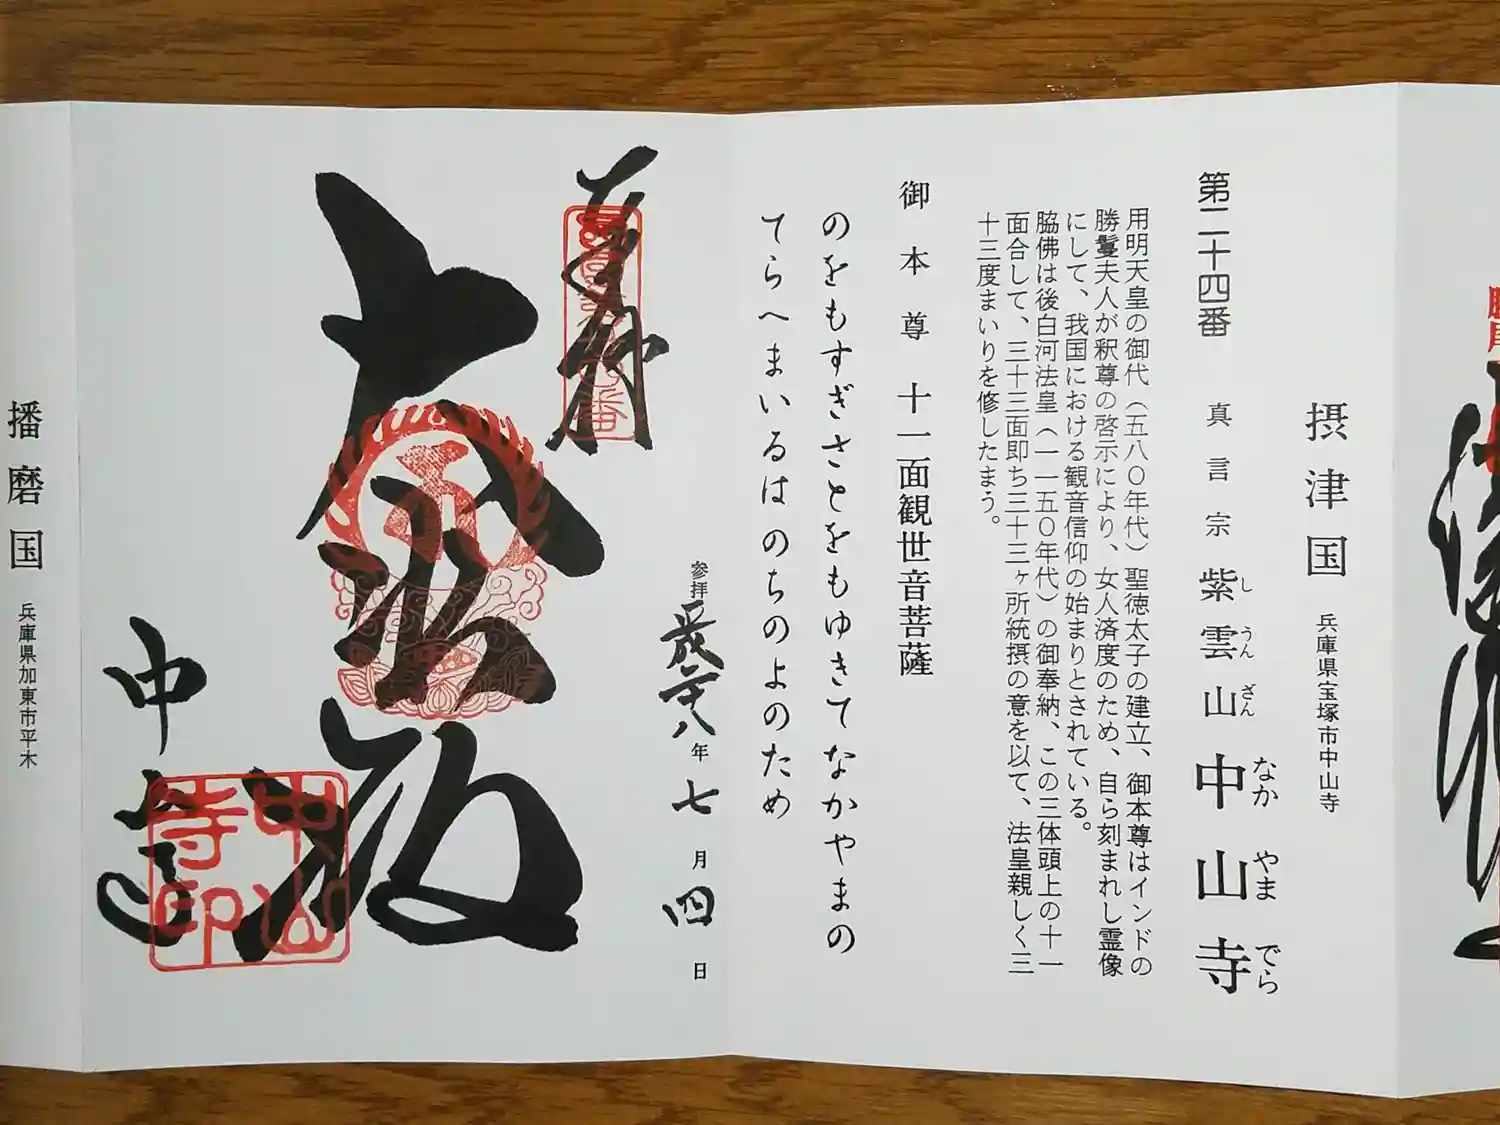 摂津国 兵庫県宝塚市中山寺
第二十四番 真言宗 紫雲山 中山寺
し うん ざん なか やま でら
用明天皇の御代（五八〇年代）聖徳太子の建立、御本尊はインドの
勝鬘夫人が釈尊の啓示により、女人済度のため、自ら刻まれし霊像
にして、我国における観音信仰の始まりとされている。
脇佛は後白河法皇（一一五〇年代）の御奉納、この三体頭上の十一
面合して、三十三面即ち三十三ヶ所統摂の意を以て、法皇親しく三
十三度まいりを修したまう。
御本尊 十一面観世音菩薩
のをもすぎさとをもゆきてなかやまの
てらへまいるはのちのよのため
奉拝
参拝 平成二十八年 七月 四日
大悲殿
中山寺
中山寺印
播磨国 兵庫県加東市平木